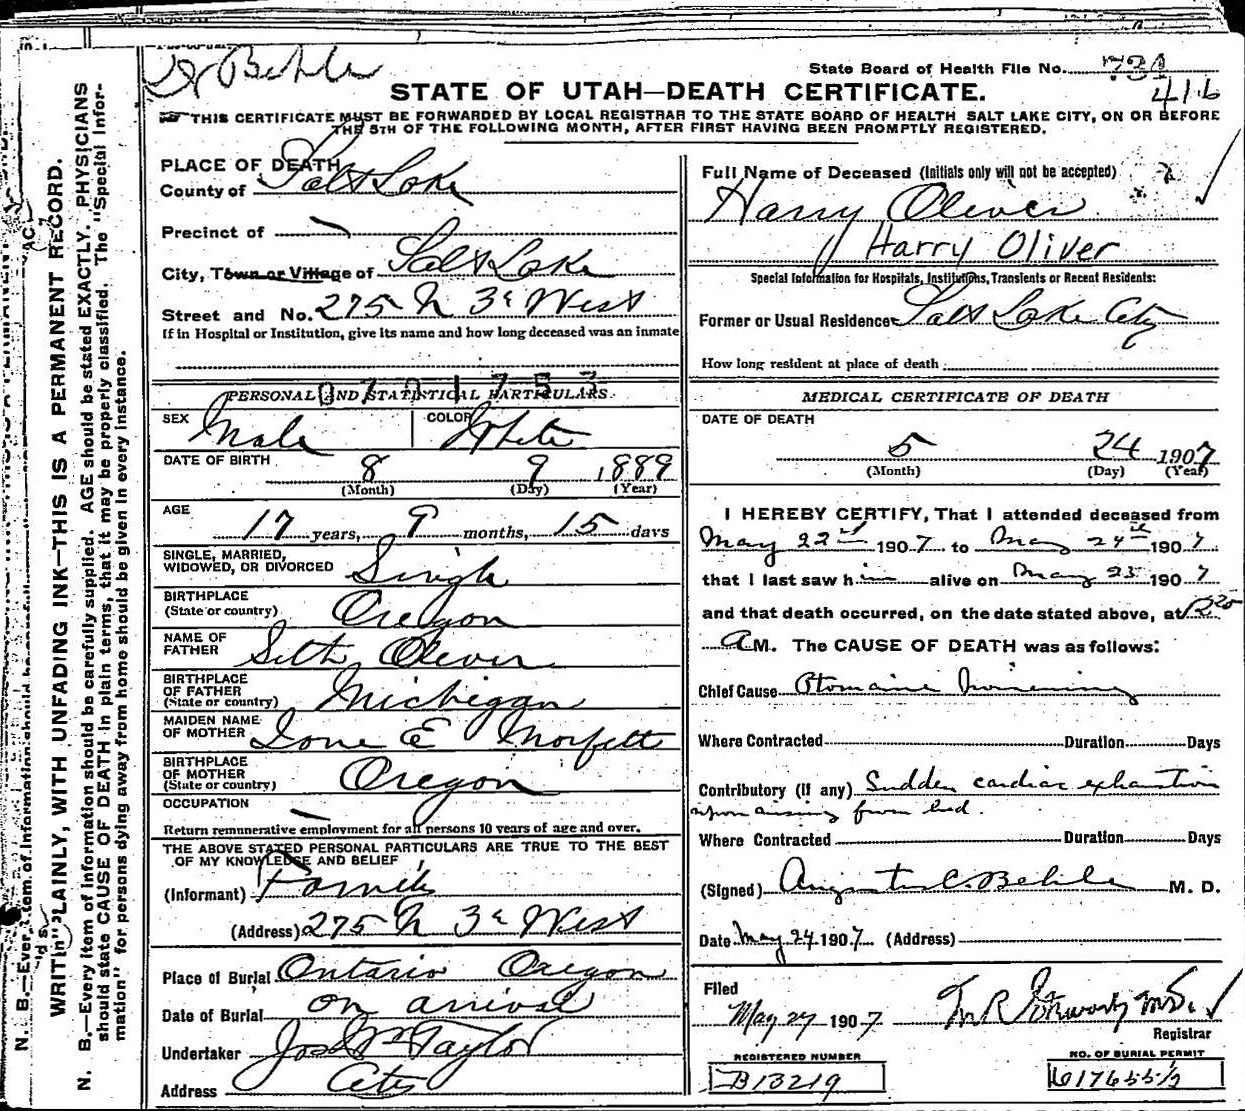 Dr Behle
State Board of Health File No. 731
416
STATE OF UTAH—DEATH CERTIFICATE.
THIS CERTIFICATE MUST BE FORWARDED BY LOCAL REGISTRAR TO THE STATE BOARD OF HEALTH SALT LAKE CITY, ON OR BEFORE
THE 5TH OF THE FOLLOWING MONTH, AFTER FIRST HAVING BEEN PROMPTLY REGISTERED.
N. B.—Every item of information should be
WRITE PLAINLY, WITH UNFADING INK—THIS IS A PERMANENT RECORD.
N. B.—Every item of information should be carefully supplied. AGE should be stated EXACTLY. PHYSICIANS
should state CAUSE OF DEATH in plain terms, that it may be properly classified. The "Special Infor-
mation" for persons dying away from home should be given in every instance.
PLACE OF DEATH
County of Salt Lake
Precinct of
City, Town or Village of Salt Lake
Street and No. 275 N 3d West
If in Hospital or Institution, give its name and how long deceased was an inmate
0701753
PERSONAL AND STATISTICAL PARTICULARS.
SEX Male COLOR White
DATE OF BIRTH 8 9 1889
(Month) (Day) (Year)
AGE 17 years, 9 months, 15 days
SINGLE, MARRIED,
WIDOWED, OR DIVORCED Single
BIRTHPLACE
(State or country) Oregon
NAME OF
FATHER Seth Oliver
BIRTHPLACE
OF FATHER
(State or country) Michigan
MAIDEN NAME
OF MOTHER Ione E Morfitt
BIRTHPLACE
OF MOTHER
(State or country) Oregon
OCCUPATION
Return remunerative employment for all persons 10 years of age and over.
THE ABOVE STATED PERSONAL PARTICULARS ARE TRUE TO THE BEST
OF MY KNOWLEDGE AND BELIEF
(Informant) Family
(Address) 275 N 3d West
Place of Burial Ontario Oregon
Date of Burial on arrival
Undertaker Jos Wm Taylor
Address City
Full Name of Deceased (Initials only will not be accepted)
Harry Oliver
Harry Oliver
Special Information for Hospitals, Institutions, Transients or Recent Residents:
Former or Usual Residence Salt Lake City
How long resident at place of death
MEDICAL CERTIFICATE OF DEATH
DATE OF DEATH
5 24 1907
(Month) (Day) (Year)
I HEREBY CERTIFY, That I attended deceased from
May 22nd 1907 to May 24th 1907
that I last saw him alive on May 23 1907
and that death occurred, on the date stated above, at 12 20
A M. The CAUSE OF DEATH was as follows:
Chief Cause Ptomaine Poisoning
Where Contracted Duration Days
Contributory (If any) Sudden cardiac exhaustion
upon arising from bed.
Where Contracted Duration Days
(Signed) Augustus C. Behle M. D.
Date May 24 1907 (Address)
Filed
May 27 1907
Registrar
REGISTERED NUMBER
B13219
NO. OF BURIAL PERMIT